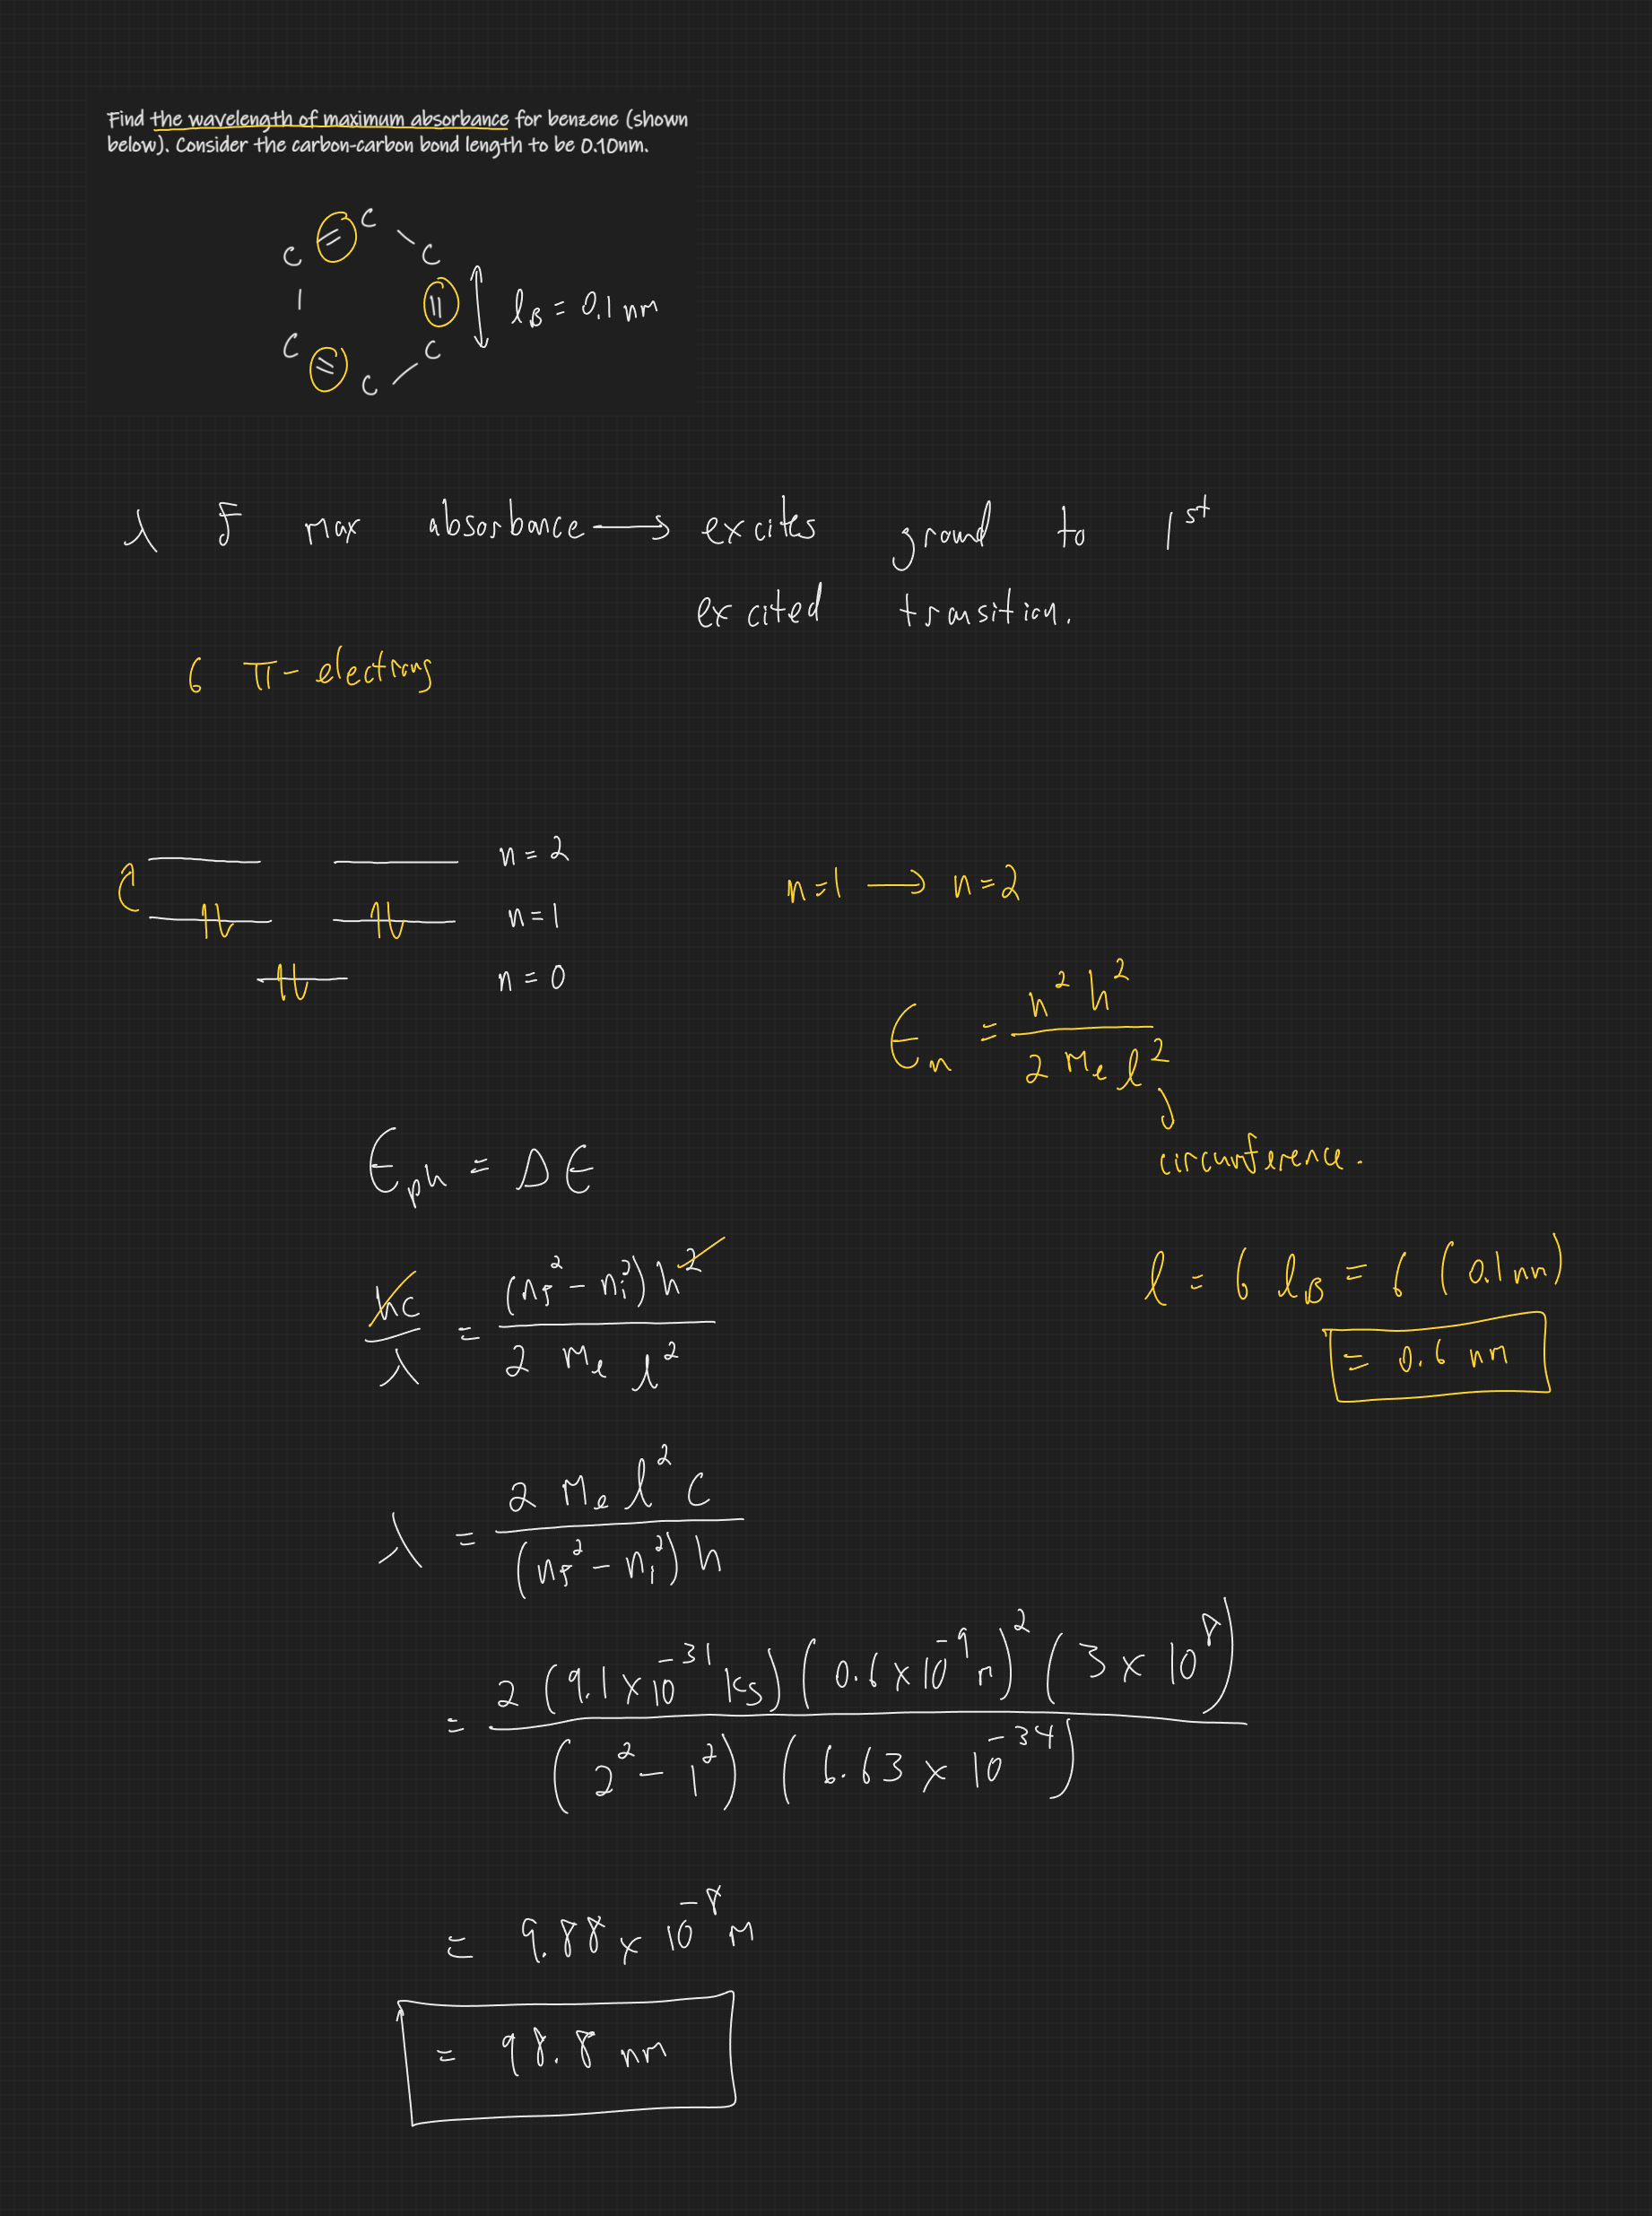 Find the wavelength of maximum absorbance for benzene (shown
below). Consider the carbon-carbon bond length to be 0.10nm.
C = C - C
C = C - C
l_B = 0.1 nm
λ of max absorbance → excites ground to 1st
excited transition.
6 π-electrons
n = 2
n = 1
n = 0
n=1 → n=2
E_n = n² h² / 2 m_e l²
circumference.
E_ph = ΔE
hc / λ = (n_f² - n_i²) h² / 2 m_e l²
l = 6 l_B = 6 (0.1 nm)
= 0.6 nm
λ = 2 m_e l² c / (n_f² - n_i²) h
= 2 (9.1 × 10⁻³¹ kg) (0.6 × 10⁻⁹ m)² (3 × 10⁸) / (2² - 1²) (6.63 × 10⁻³⁴)
= 9.88 × 10⁻⁸ m
= 98.8 nm